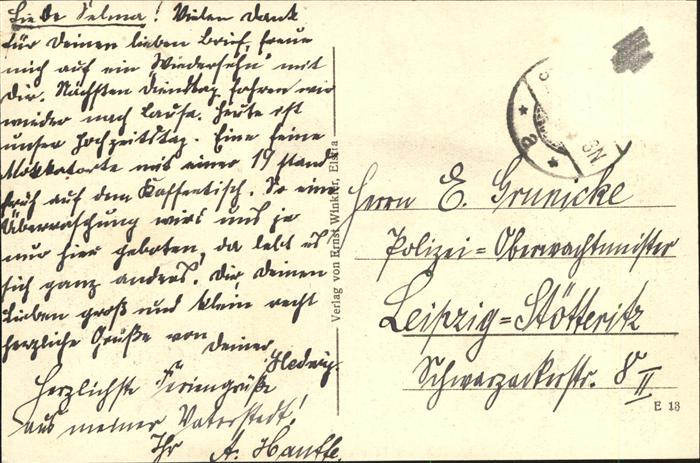 Liebe Selma! Vielen Dank
für Deinen lieben Brief, freue
mich auf ein Wiedersehn mit
Dir. Nächsten Dienstag fahren wir
wieder nach Hause. Heute ist
unser Hochzeitstag. Eine feine
Mokkatorte mit einer 19 stand
früh auf dem Kaffeetisch. So eine
Überraschung wird uns ja
nur hier geboten, da lebt es
sich ganz anders. Dir Deinen
Lieben groß und klein recht
herzliche Grüße von
Deiner Hedwig.
Herzlichste Feriengrüße
aus meiner Vaterstadt!
Ihr A. Hauffe.
Verlag von Ernst Winkler, Elstra
Herrn E. Grunicke
Polizei-Oberwachtmeister
Leipzig-Stötteritz
Schwarzackerstr. 8 II
E 13